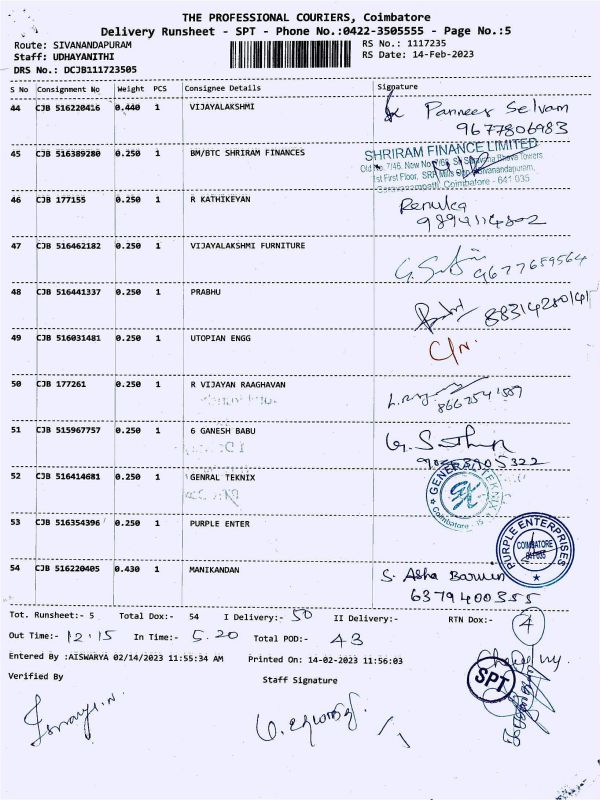 THE PROFESSIONAL COURIERS, Coimbatore
Delivery Runsheet - SPT - Phone No.:0422-3505555 - Page No.:5
Route: SIVANANDAPURAM
Staff: UDHAYANITHI
DRS No.: DCJB111723505
RS No.: 1117235
RS Date: 14-Feb-2023
S No Consignment No Weight PCS Consignee Details Signature
44 CJB 516220416 0.440 1 VIJAYALAKSHMI Panneer Selvam
9677806983
45 CJB 516389280 0.250 1 BM/BTC SHRIRAM FINANCES
SHRIRAM FINANCE LIMITED
Old No. 7/46, Now No 7/66, Towers
1st First Floor, SRP Mills Sivanandapuram,
Saravanampatti, Coimbatore - 641 035
46 CJB 177155 0.250 1 R KATHIKEYAN Renuka
9894114802
47 CJB 516462182 0.250 1 VIJAYALAKSHMI FURNITURE
9677659564
48 CJB 516441337 0.250 1 PRABHU
8831428014
49 CJB 516031481 0.250 1 UTOPIAN ENGG C/N.
50 CJB 177261 0.250 1 R VIJAYAN RAAGHAVAN
51 CJB 515967757 0.250 1 6 GANESH BABU
52 CJB 516414681 0.250 1 GENRAL TEKNIX
GENERAL TEKNIX
Coimbatore - 35
53 CJB 516354396 0.250 1 PURPLE ENTER
PURPLE ENTERPRISES
COIMBATORE
641 035
54 CJB 516220405 0.430 1 MANIKANDAN S. Asha
6379400355
Tot. Runsheet:- 5 Total Dox:- 54 I Delivery:- 50 II Delivery:- RTN Dox:- 4
Out Time:- 12.15 In Time:- 5.20 Total POD:- 43
Entered By :AISWARYA 02/14/2023 11:55:34 AM Printed On: 14-02-2023 11:56:03
Verified By Staff Signature
SPT